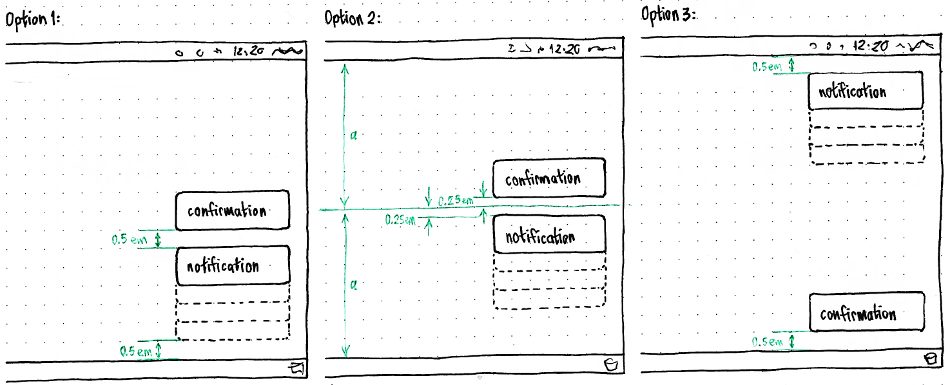 Option 1:
12:20
confirmation
0.5 em
notification
0.5 em
Option 2:
12:20
a
confirmation
0.25em
0.25em
notification
a
Option 3:
12:20
0.5em
notification
confirmation
0.5em